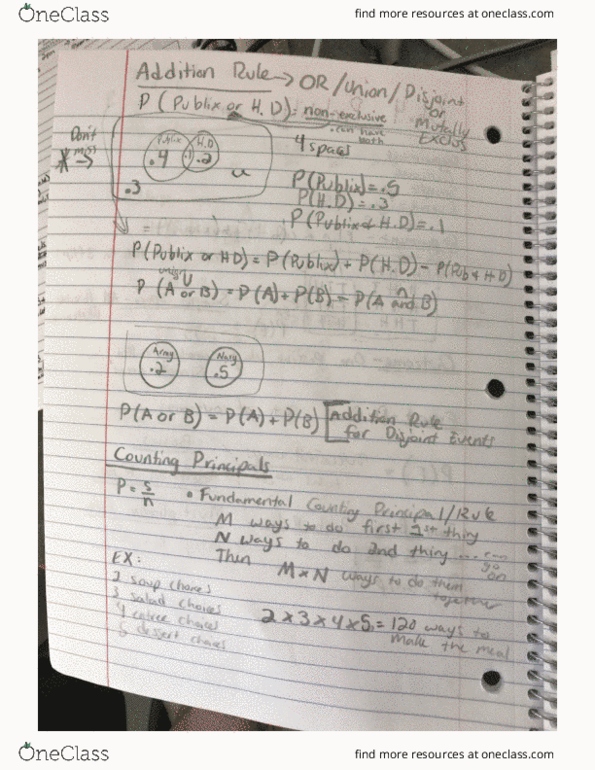 OneClass
find more resources at oneclass.com
Addition Rule → OR/Union/Disjoint
or
Mutally
P (Publix or H.D) = non-exclusive
can have
both
Don't
miss
Publix H.D
.4 .1 .2
.3
u
4 spaces
P(Publix) = .5
P(H.D) = .3
P(Publix & H.D) = .1
P(Publix or HD) = P(Publix) + P(H.D) - P(Pub & HD)
P (A or B) = P(A) + P(B) - P(A and B)
Army .2 Navy .5
P(A or B) = P(A) + P(B) Addition Rule
for Disjoint Events
Counting Principals
P = s/n • Fundamental Counting Principal/Rule
M ways to do first 1st thing
N ways to do 2nd thing ... can
go
on
Then M×N ways to do them
together
EX:
2 soup choices
3 salad choices
4 entree choices
5 dessert choices
2×3×4×5 = 120 ways to
make the meal
OneClass
find more resources at oneclass.com